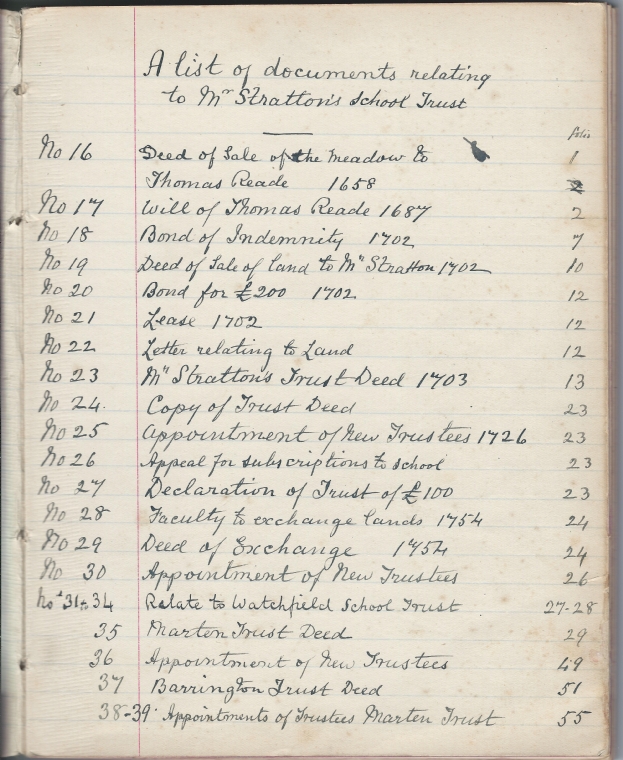 A list of documents relating
to Mr Stratton's School Trust
folio
No 16 Deed of Sale of the Meadow to 1
Thomas Reade 1658
No 17 Will of Thomas Reade 1687 2
No 18 Bond of Indemnity 1702 7
No 19 Deed of Sale of land to Mr Stratton 1702 10
No 20 Bond for £200 1702 12
No 21 Lease 1702 12
No 22 Letter relating to Land 12
No 23 Mr Stratton's Trust Deed 1703 13
No 24. Copy of Trust Deed 23
No 25 Appointment of New Trustees 1726 23
No 26 Appeal for subscriptions to school 23
No 27 Declaration of Trust of £100 23
No 28 Faculty to exchange lands 1754 24
No 29 Deed of Exchange 1754 24
No 30 Appointment of New Trustees 26
Nos 31 to 34 Relate to Watchfield School Trust 27-28
35 Marten Trust Deed 29
36 Appointment of New Trustees 49
37 Barrington Trust Deed 51
38-39 Appointments of Trustees Marten Trust 55